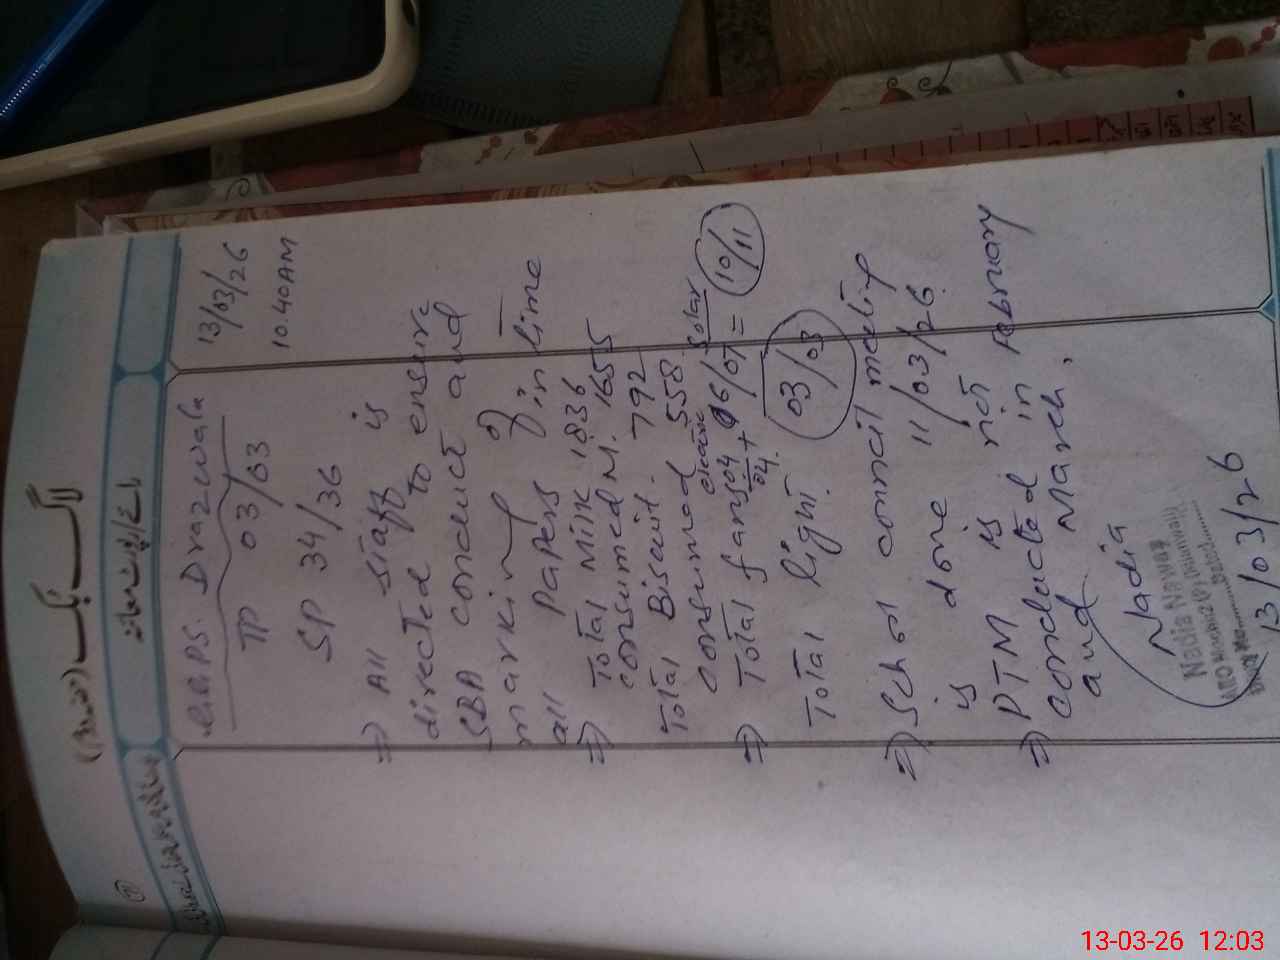 لاگ بک (حصہ)
13/03/26
10.40AM
G.G.P.S. Drazwala
TP 03/03
SP 34/36
⇒ All staff is
directed to ensure
SBA conduct and
marking of
all papers in time
⇒ Total Milk 1836
consumed M. 1655
Total Biscuit. 792
consumed 558
electric Solar
⇒ Total fans 04/04 + 06/07 = 10/11
Total light. 03/03
⇒ School council meeting
is done 11/03/26.
⇒ PTM is not
conducted in February
and March.
Nadia
Nadia Nawaz
13/03/26
13-03-26 12:03